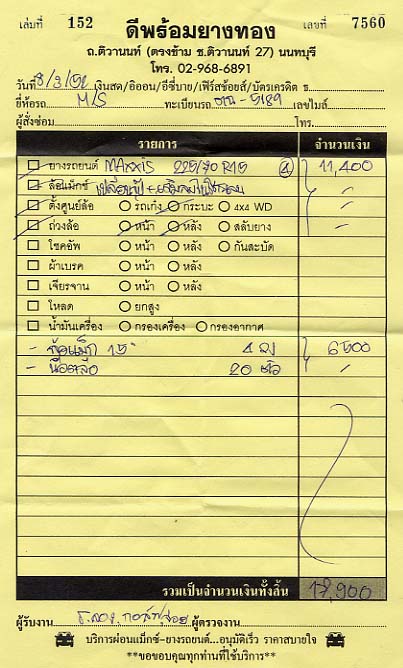 เล่มที่ 152 เลขที่ 7560
ดีพร้อมยางทอง
ถ.ติวานนท์ (ตรงข้าม ซ.ติวานนท์ 27) นนทบุรี
โทร. 02-968-6891
วันที่ 8/3/52 เงินสด/อิออน/อีซี่บาย/เฟิร์สช้อยส์/บัตรเครดิต ธ.
ยี่ห้อรถ M/S ทะเบียนรถ 5189 เลขไมล์
ผู้สั่งซ่อม โทร.
รายการ จำนวนเงิน
ยางรถยนต์ MAXXIS 225/70 R15 ④ 11,400
ล้อแม็กซ์ "
ตั้งศูนย์ล้อ รถเก๋ง กระบะ 4x4 WD "
ถ่วงล้อ หน้า หลัง สลับยาง "
โชคอัพ หน้า หลัง กันสะบัด
ผ้าเบรค หน้า หลัง
เจียรจาน หน้า หลัง
โหลด ยกสูง
น้ำมันเครื่อง กรองเครื่อง กรองอากาศ
- ล้อแม็ก 15" 4 วง 6500
- น็อตล้อ 20 ตัว "
รวมเป็นจำนวนเงินทั้งสิ้น 17,900
ผู้รับงาน ผู้ตรวจงาน
บริการผ่อนแม็กซ์-ยางรถยนต์...อนุมัติเร็ว ราคาสบายใจ
**ขอขอบคุณทุกท่านที่ใช้บริการ**